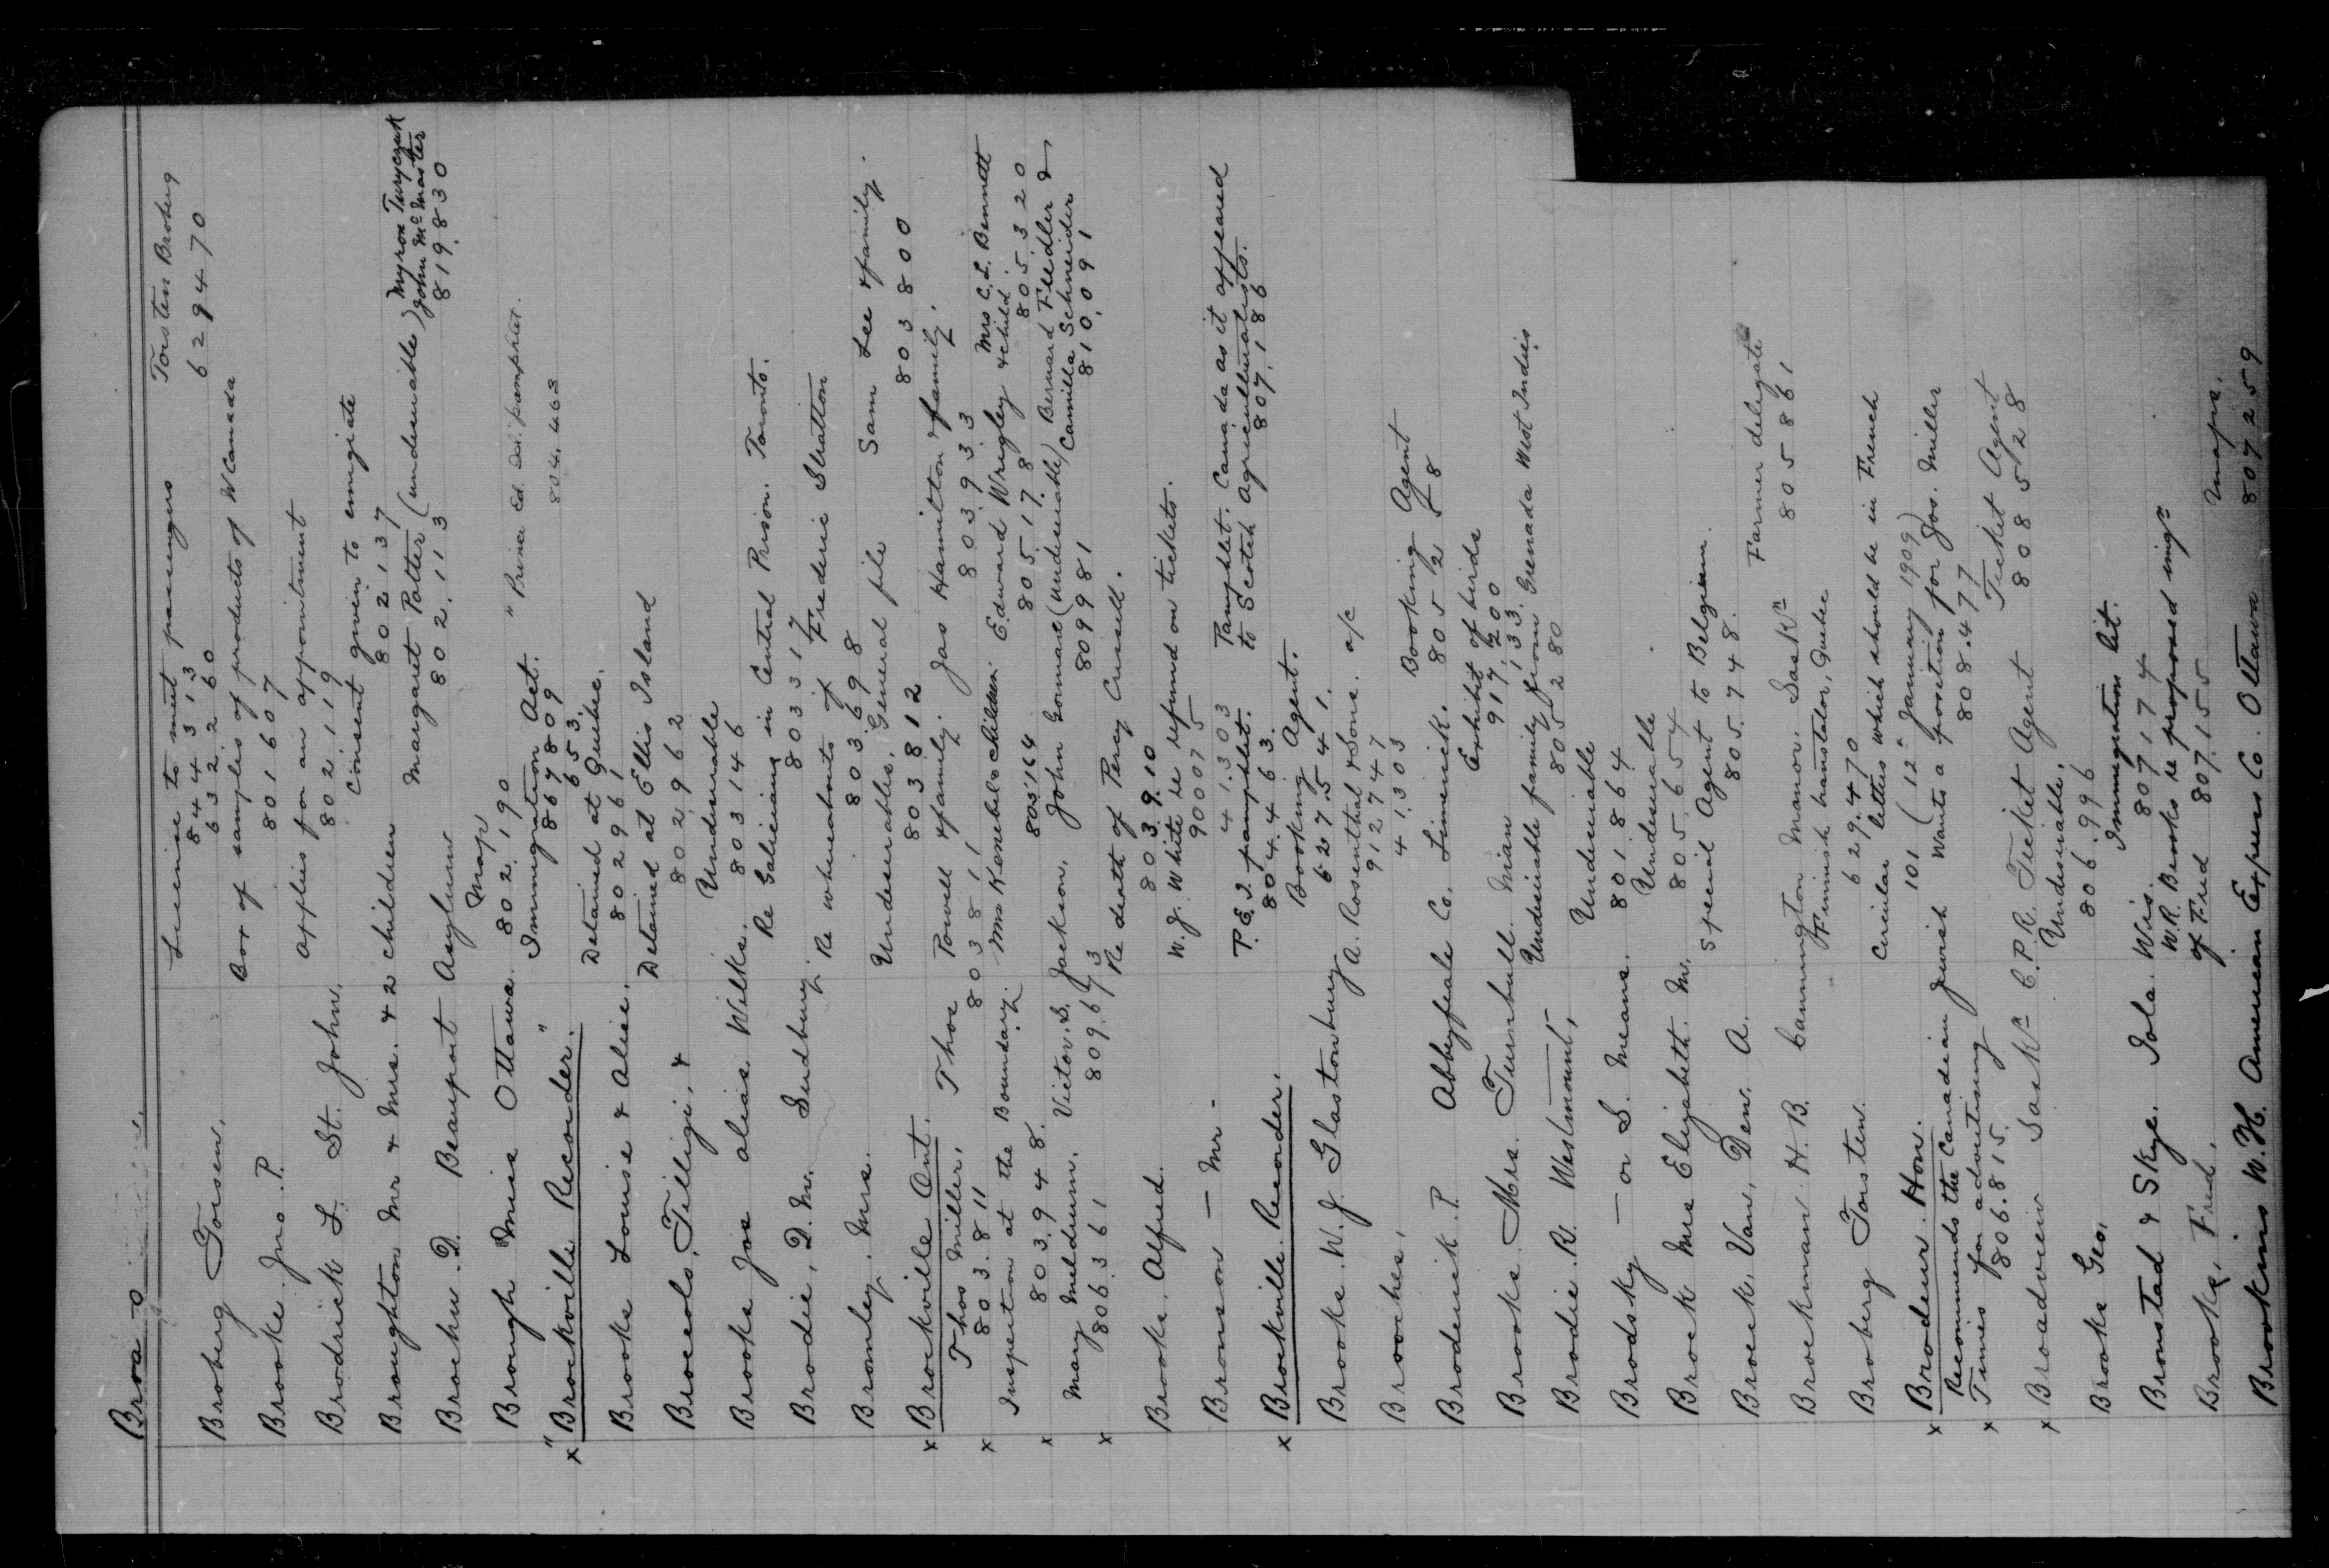 Broa - o
Broberg Torsen. License to meet passengers Torsten Broberg
844313 629470
632260
Brooke Jno. P. Box of samples of products of W Canada
801607
Brodrick L. St. John. Applies for an appointment
802119
Broughton Mr & Mrs. & 2 children Consent given to emigrate
802137
Brochu D. Beauport Asylum Margaret Potter (undesirable) Myron Turyczuk
John McMaster
802.113 819.830
Brough Miss Ottawa. Map "Prina Ed. Isl. pamphlet.
802.190 804.463
x "Brockville Recorder." Immigration Act.
867809
653.
Brooks Louise & Alice. Detained at Quebec.
802961
Broccolo, Filligi, & Detained at Ellis Island
802962
Brooks Jos alias Wilks. Undesirable
803146
Brodie, D. M. Sudbury. Re Galicians in Central Prison. Toronto.
803317
Bromley, Mrs. Re whereabouts of Frederic Stratton
803698
x Brockville Ont. Undesirables, General file Sam Lee & family.
803812 803800
Thos Miller, Thos Powell & family. Jas Hamilton & family.
x 803.811 803811 803933
Inspection at the Boundary. Mrs Kenebel & children Edward Wrigley Mrs C. L. Bennett
& child
x 803.948. 805164 805178 805.320
Mary Meldrum. Victor. S. Jackson. John Gormare (undesirable) Bernard Fledler &
Camilla Schneider
x 806361 809.673 809981 810,091
Brooks, Alfred. Re death of Percy Crissell.
803.910
Bronson — Mr. W. J. White re refund on tickets.
900075
x Brockville Recorder. 41.303 Pamphlet. Canada as it appeared
P.E.I. pamphlet. to Scotch Agriculturalists.
804.463. 807.186
Brooks W. J. Glastonbury Booking Agent.
627.541.
Brooches, A. Rosenthal & Sons. a/c
912747
41.303
Broderick P. Abbeyfeale Co. Limerick. Booking Agent
805528
Brooks. Mrs. Turnbull. Mian Exhibit of birds
917,200
Brodie. R. Westmount, Undesirable family from Grenada West Indies
805280
Brodsky — or S. Means. Undesirable
801864
Brock Mrs Elizabeth. M. Undesirable
805.654
Broeck, Van, Den, A. Special Agent to Belgium.
805.748.
Brockman. H. B. Cannington Manor. Saskn Farmer delegate
805861
Broberg Torsten. Finnish translator, Quebec
629.470
x Brodeur. Hon. Circular letters which should be in French
101 (12th January 1909)
Recommends the Canadian Jewish Wants a position for Jos. Miller
x Times for advertising 808.477
806.815.
x Broadview Saskn C.P.R. Ticket Agent Ticket Agent
808528
Brooks Geo, Undesirable,
806.996
Bronstad & Skye. Iola. Wis. Immigration lit.
807174
Brooks, Fred. W. R. Brooks re proposed imgn
of Fred 807.155
Brookins W. H. American Express Co. Ottawa Maps.
807259